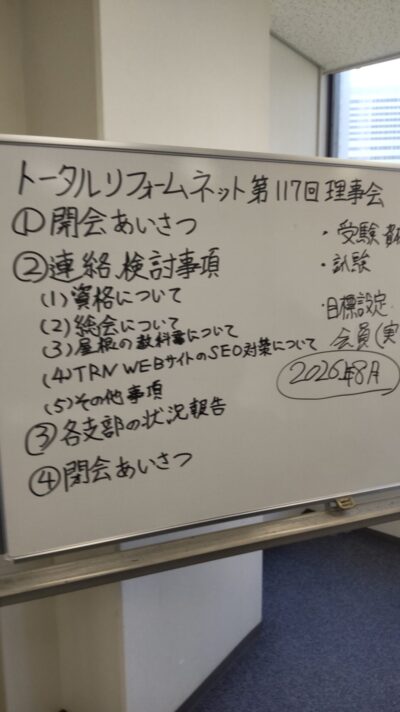 トータルリフォームネット第117回理事会
①開会あいさつ
②連絡、検討事項
(1)資格について
(2)総会について
(3)屋根の教科書について
(4)TRN WEBサイトのSEO対策について
(5)その他事項
③各支部の状況報告
④閉会あいさつ
・受験
・試験
・目標設定
会員(実
2026年8月